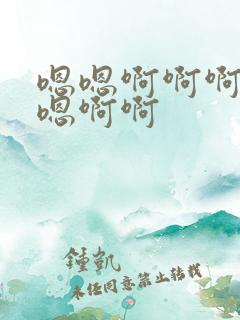 嗯嗯啊啊啊
嗯啊啊
鍾凱
未经同意禁止转载